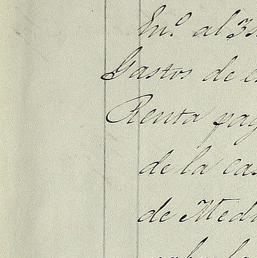 Enº al 3
Gastos de e
Renta pag
de la cas
de Medi